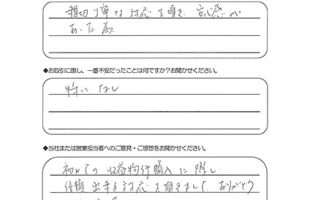 親切丁寧な対応を頂き 安心感が
あった為
◆お取引に際し、一番不安だったことは何ですか？お聞かせください。
特になし
◆当社または営業担当者へのご意見・ご感想をお聞かせください。
初めての収益物件購入に際し
信頼出来る対応を頂きまして ありがとう